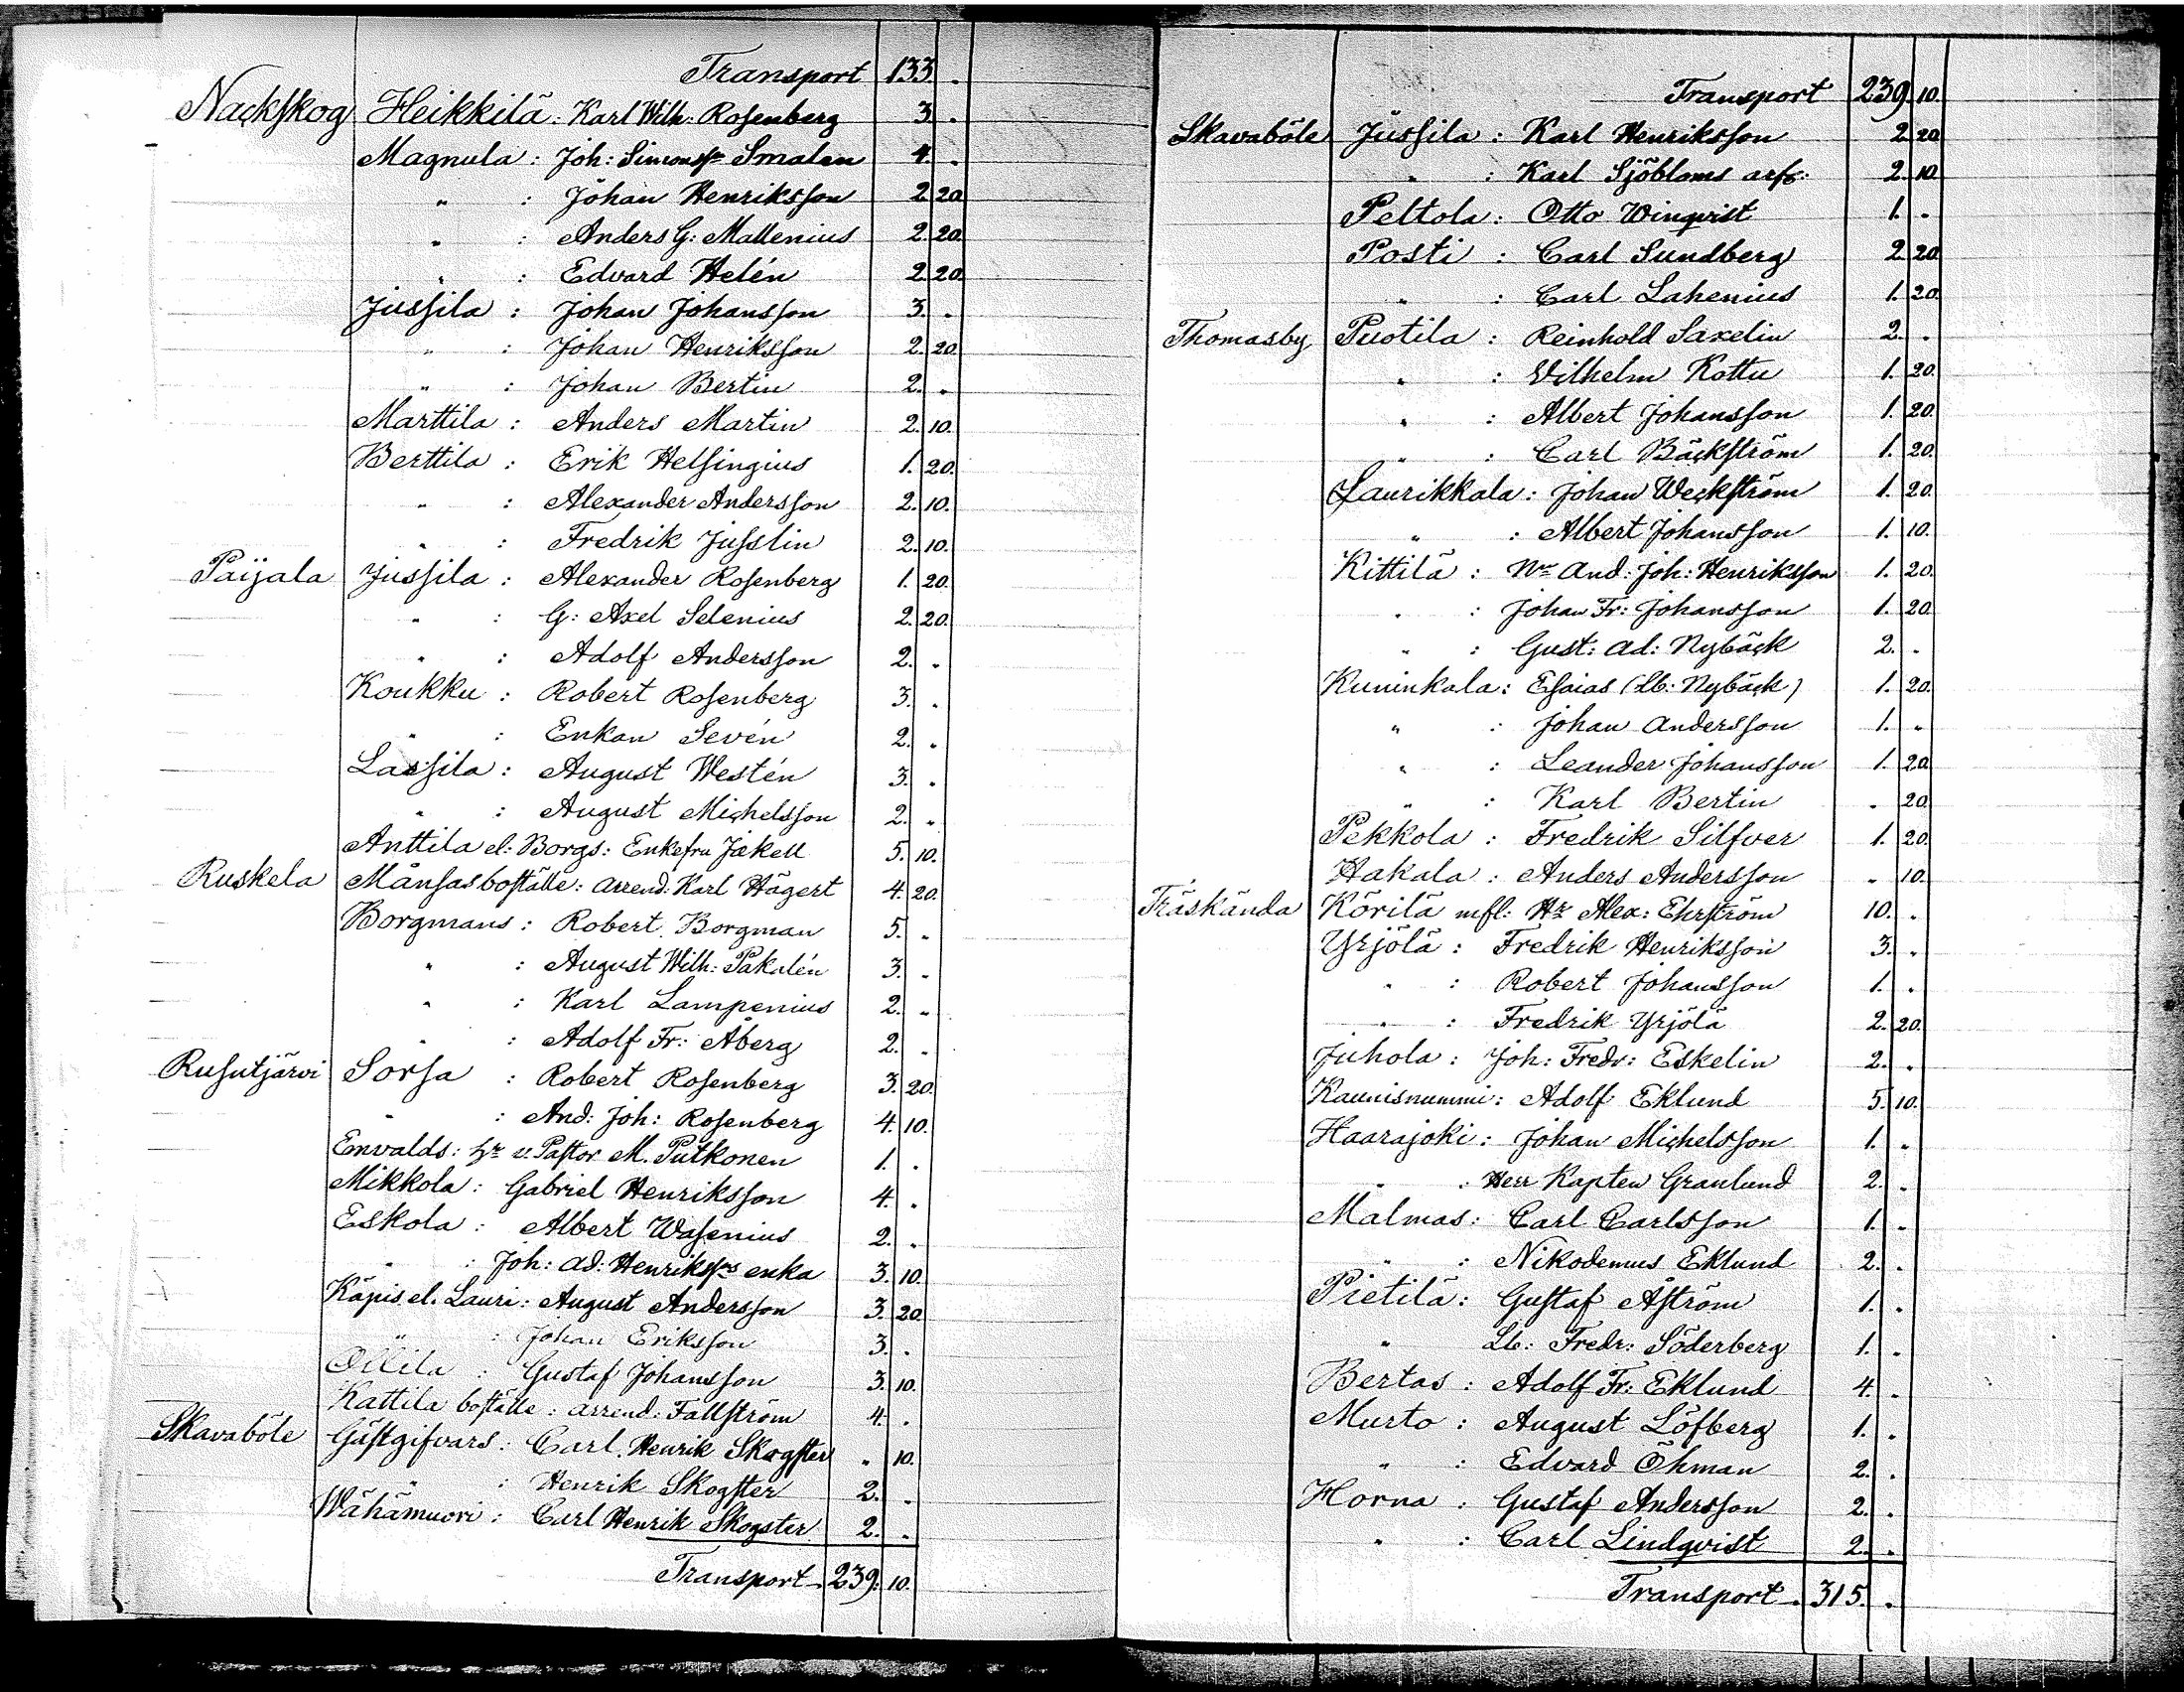 Transport 133. "
Nackskog Heikkilä: Karl Wilh: Rosenberg 3. "
Magnula: Joh: Simonss: Smalen 4. "
" : Johan Henriksson 2. 20.
" : Anders G: Mallenius 2. 20.
" : Edvard Helén 2. 20.
Jussila: Johan Johansson 3. "
" : Johan Henriksson 2. 20.
" : Johan Bertin 2. "
Marttila: Anders Martin 2. 10.
Berttila: Erik Helsingius 1. 20.
" : Alexander Andersson 2. 10.
" : Fredrik Jusslin 2. 10.
Paijala Jussila: Alexander Rosenberg 1. 20.
" : G: Axel Selenius 2. 20.
" : Adolf Andersson 2. "
Koukku: Robert Rosenberg 3. "
" : Enkan Sevén 2. "
Lassila: August Westén 3. "
" : August Michelsson 2. "
Anttila el: Borgs: Enkefru Jakell 5. 10.
Ruskela Månsasboställe: arrend: Karl Hägert 4. 20.
Borgmans: Robert Borgman 5. "
" : August Wilh: Pakalén 3. "
" : Karl Lampenius 2. "
" : Adolf Fr: Åberg 2. "
Rusutjärvi Sorsa: Robert Rosenberg 3. 20.
" : And: Joh: Rosenberg 4. 10.
Emvalds: Hr v. Pastor M. Putkonen 1. "
Mikkola: Gabriel Henriksson 4. "
Eskola: Albert Wasenius 2. "
" : Joh: Ad: Henrikssons enka 3. 10.
Käpis el. Lauri: August Andersson 3. 20.
" : Johan Eriksson 3. "
Ollila: Gustaf Johansson 3. 10.
Kattila boställe: arrend: Fallström 4. "
Skavaböle Gästgifvars: Carl Henrik Skogster " 10.
" : Henrik Skogster 2. "
Wähämuori: Carl Henrik Skogster 2. "
Transport 239. 10.
Transport 239. 10.
Skavaböle Jussila: Karl Henriksson 2. 20.
" : Karl Sjöbloms arfv: 2. 10.
Peltola: Otto Winqvist 1. "
Posti: Carl Sundberg 2. 20.
" : Carl Lahenius 1. 20.
Thomasby Puotila: Reinhold Saxelin 2. "
" : Vilhelm Kottu 1. 20.
" : Albert Johansson 1. 20.
" : Carl Bäckström 1. 20.
Laurikkala: Johan Weckström 1. 20.
" : Albert Johansson 1. 10.
Kittilä: Nr And: Joh: Henriksson 1. 20.
" : Johan Fr: Johansson 1. 20.
" : Gust: Ad: Nybäck 2. "
Kuninkala: Esaias (Lb: Nybäck) 1. 20.
" : Johan Andersson 1. "
" : Leander Johansson 1. 20.
" : Karl Bertin " 20.
Pekkola: Fredrik Silfver 1. 20.
Hakala: Anders Andersson " 10.
Träskända Körilä mfl: Hr Alex: Ehrström 10. "
Yrjölä: Fredrik Henriksson 3. "
" : Robert Johansson 1. "
" : Fredrik Yrjölä 2. 20.
Juhola: Joh: Fredr: Eskelin 2. "
Kaunisnummi: Adolf Eklund 5. 10.
Haarajoki: Johan Michelsson 1. "
" : Herr Kapten Granlund 2. "
Malmas: Carl Carlsson 1. "
" : Nikodemus Eklund 2. "
Pietilä: Gustaf Åström 1. "
" Lb: Fredr: Söderberg 1. "
Bertas: Adolf Fr: Eklund 4. "
Murto: August Löfberg 1. "
" : Edvard Öhman 2. "
Horna: Gustaf Andersson 2. "
" : Carl Lindqvist 2. "
Transport 315. "